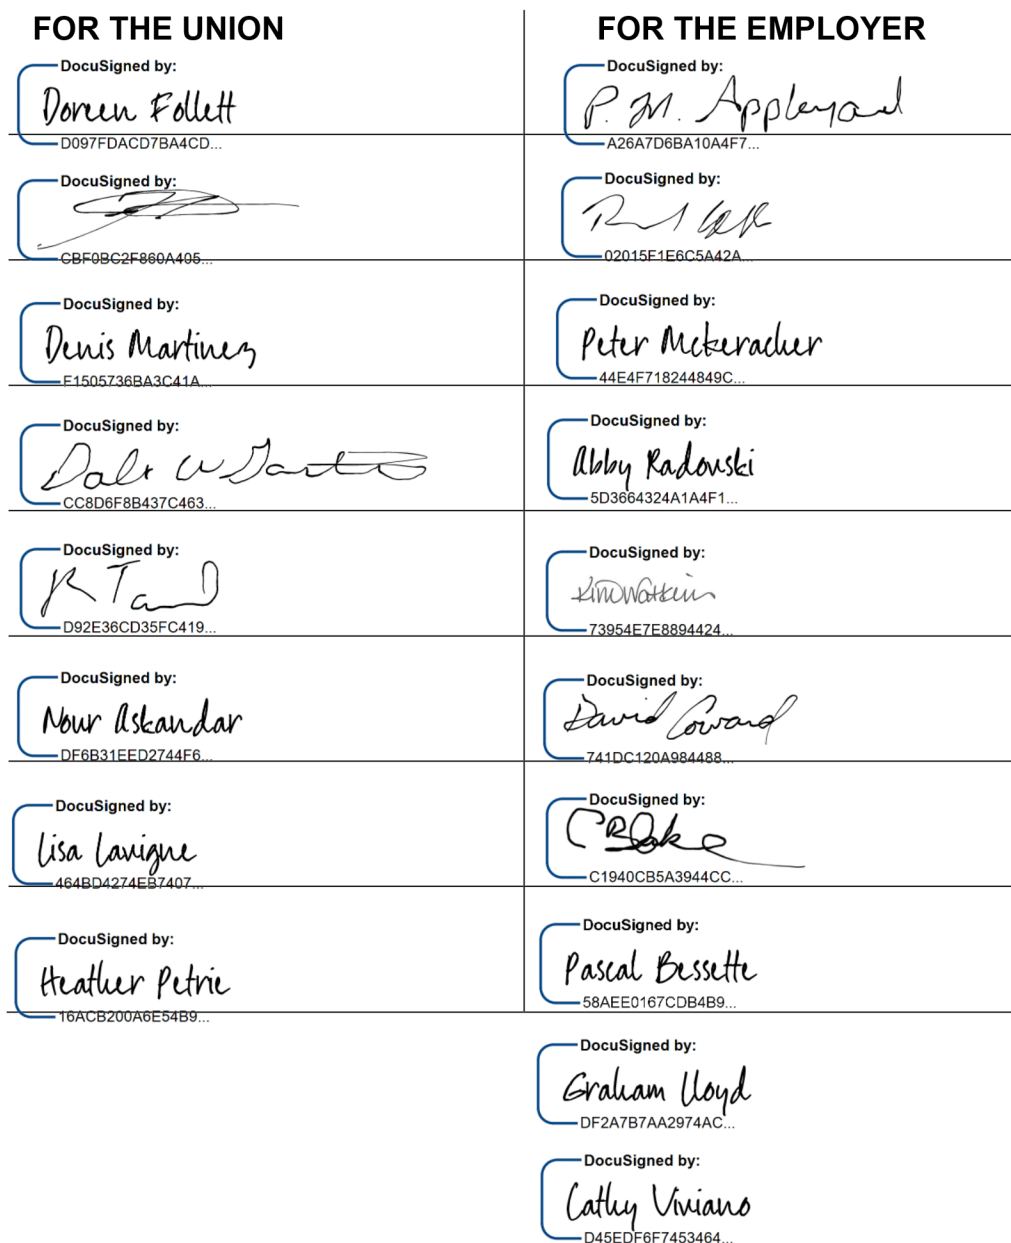 FOR THE UNION
DocuSigned by:
Doreen Follett
D097FDACD7BA4CD...
DocuSigned by:
CBF0BC2F860A405...
DocuSigned by:
Denis Martinez
F1505736BA3C41A...
DocuSigned by:
CC8D6F8B437C463...
DocuSigned by:
D92E36CD35FC419...
DocuSigned by:
Nour Askandar
DF6B31EED2744F6...
DocuSigned by:
Lisa Lavigne
464BD4274EB7407...
DocuSigned by:
Heather Petrie
16ACB200A6E54B9...
FOR THE EMPLOYER
DocuSigned by:
P. M. Appleyard
A26A7D6BA10A4F7...
DocuSigned by:
02015F1E6C5A42A...
DocuSigned by:
Peter McKeracher
44E4F718244849C...
DocuSigned by:
Abby Radovski
5D3664324A1A4F1...
DocuSigned by:
Kim Watkins
73954E7E8894424...
DocuSigned by:
David Coward
741DC120A984488...
DocuSigned by:
C Blake
C1940CB5A3944CC...
DocuSigned by:
Pascal Bessette
58AEE0167CDB4B9...
DocuSigned by:
Graham Lloyd
DF2A7B7AA2974AC...
DocuSigned by:
Cathy Viviano
D45EDF6F7453464...